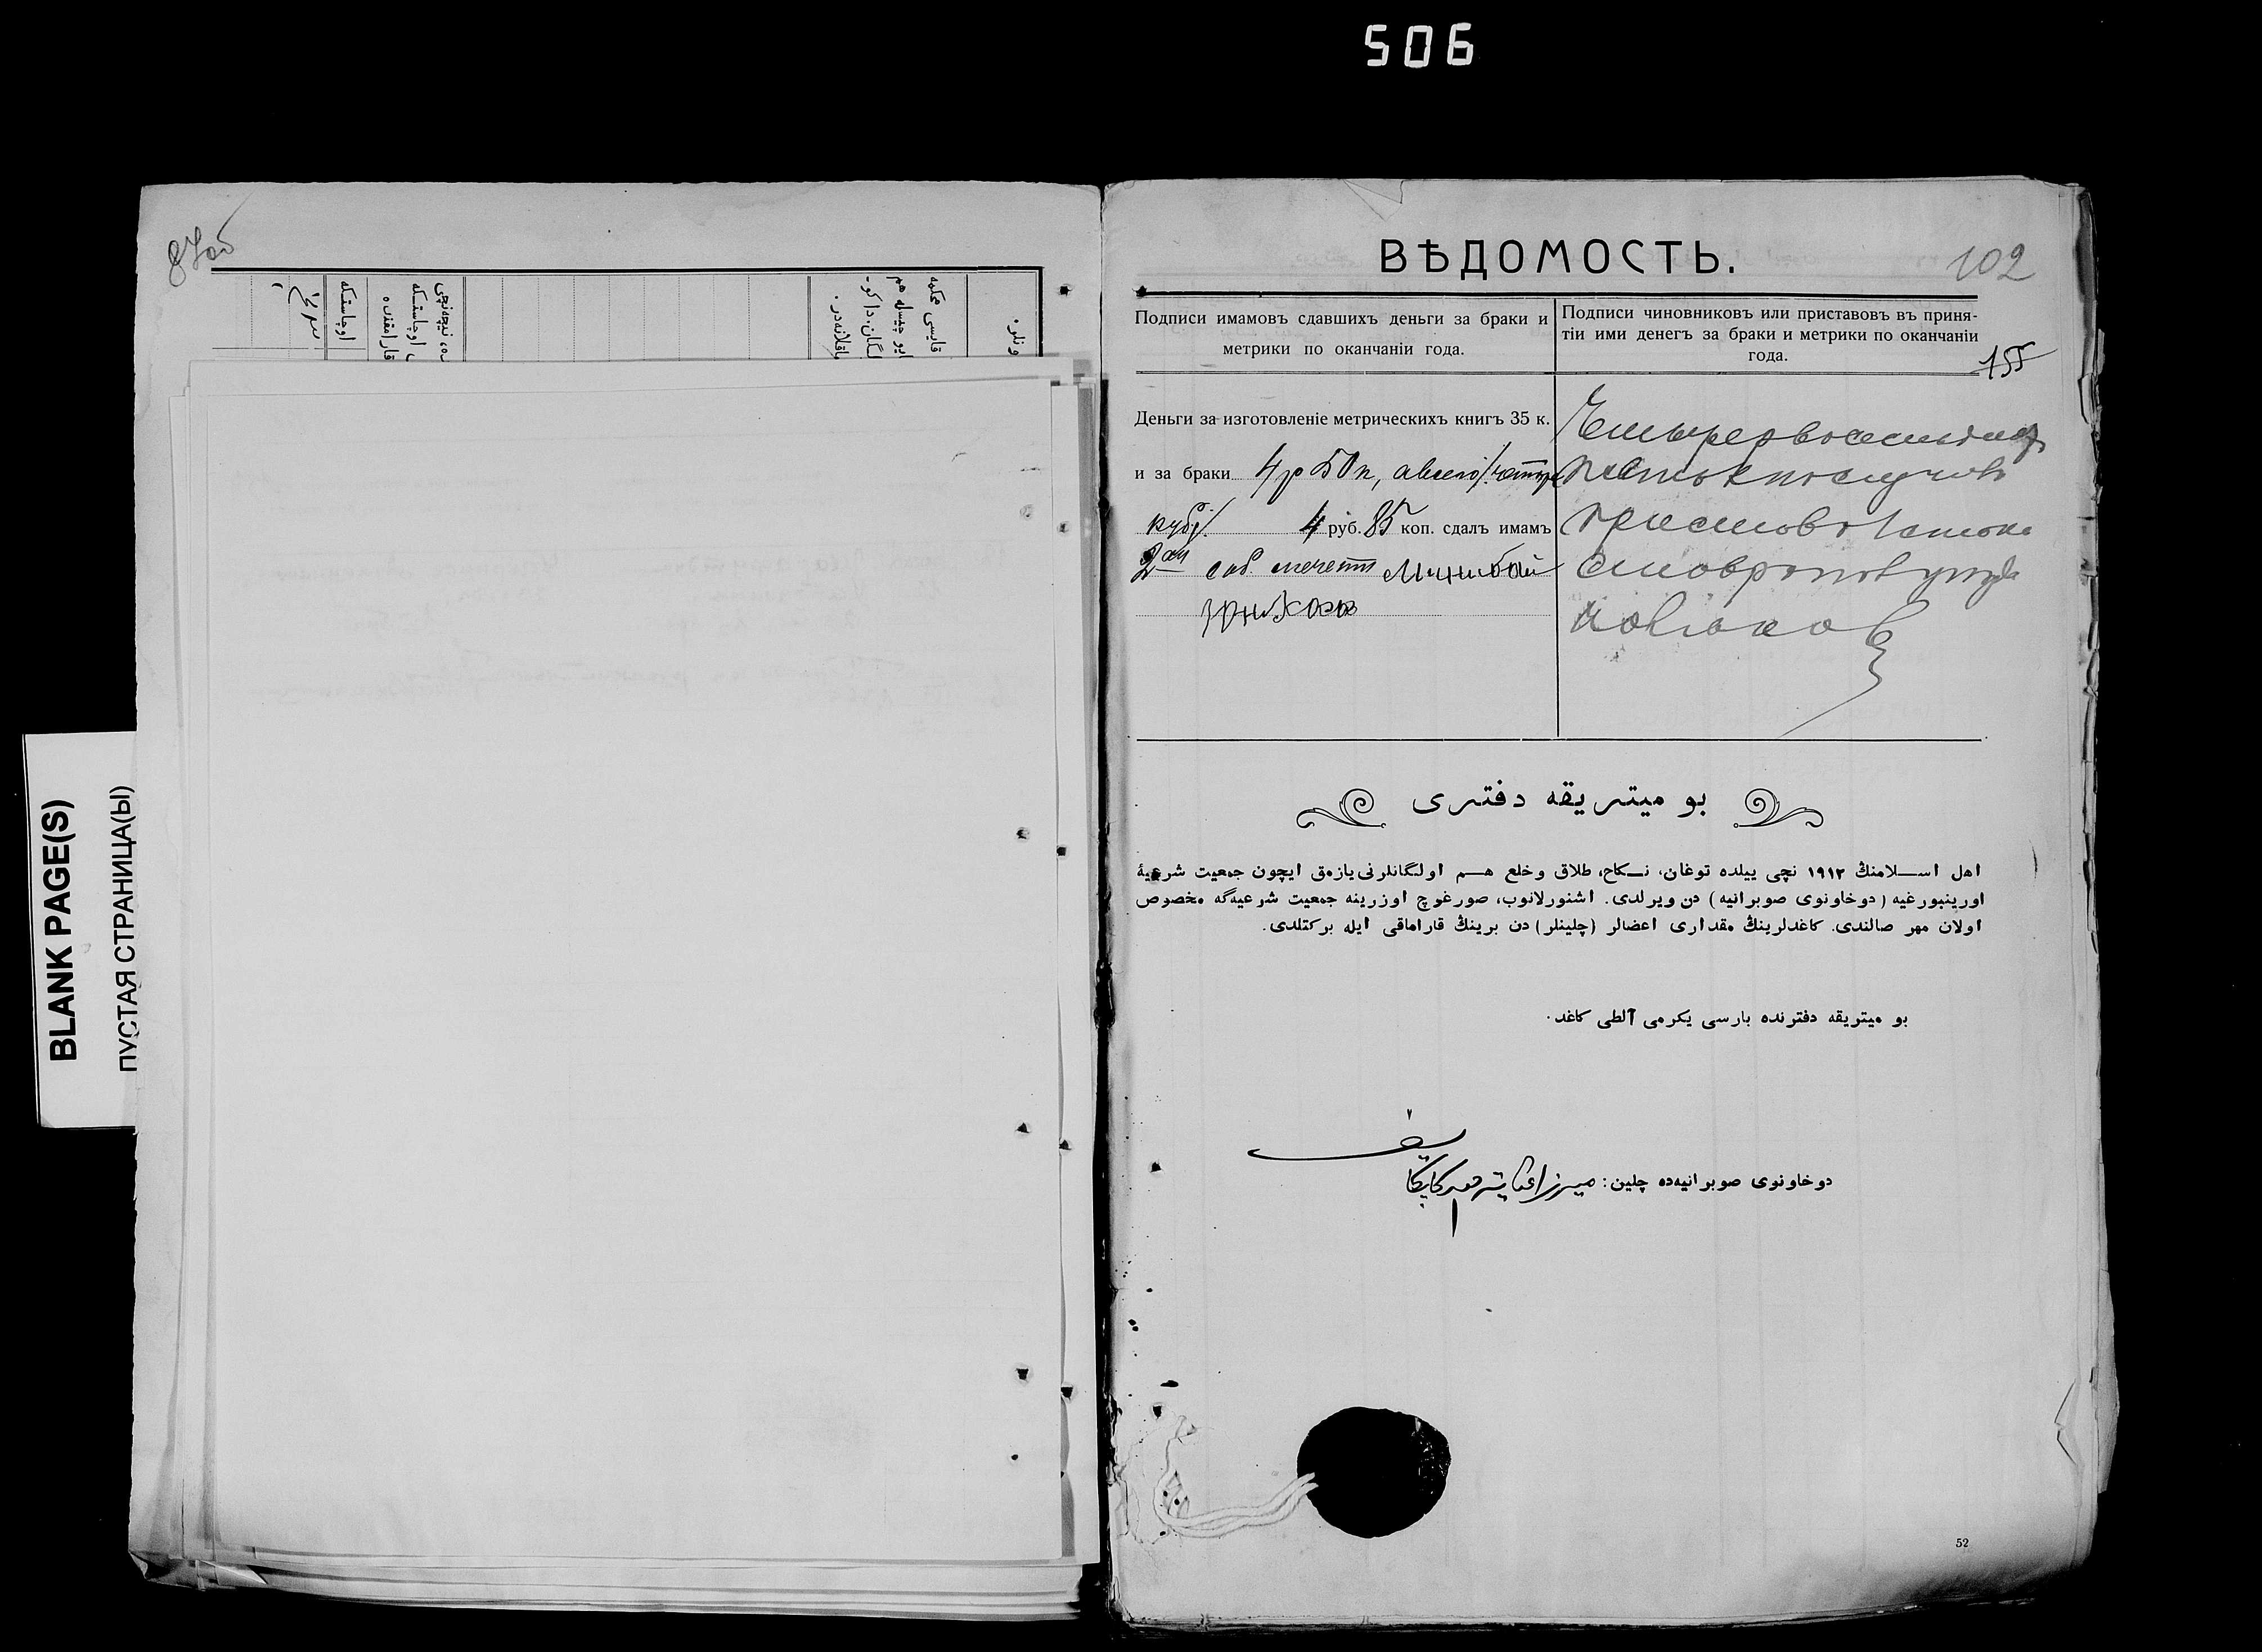 506
87об
اوچاستكه
BLANK PAGE(S)
ПУСТАЯ СТРАНИЦА(Ы)
ВѢДОМОСТЬ.
102
Подписи имамовъ сдавшихъ деньги за браки и
метрики по окончаніи года.
Подписи чиновниковъ или приставовъ въ приня-
тіи ими денегъ за браки и метрики по оканчаніи
года.
155
Деньги за изготовленіе метрическихъ книгъ 35 к.
и за браки 4 р 50 к, а всего /четыре
руб/. 4 руб. 85 коп. сдалъ имамъ
2ой соб. мечети
Четыре р восемьдесят
пять к получилъ
Приставъ 1 стана
Ставропол уезда
بو ميتريقه دفترى
اهل اســلامنڭ ١٩١٢ نچى ييلده توغان، نــكاح، طلاق وخلع هــم اولگانلرنى يازمق ايچون جمعيت شرعيۀ
اورينبورغيه (دوخاونوى صوبرانيه) دن ويرلدى. اشنورلانوب، صورغوچ اوزرينه جمعيت شرعيه‌گه مخصوص
اولان مهر صالندى. كاغدلرينڭ مقدارى اعضالر (چلينلر) دن برينڭ قاراماقى ايله بركتلدى.
بو ميتريقه دفترنده بارسى يكرمى آلطى كاغد.
دوخاونوى صوبرانيه‌ده چلين:
52